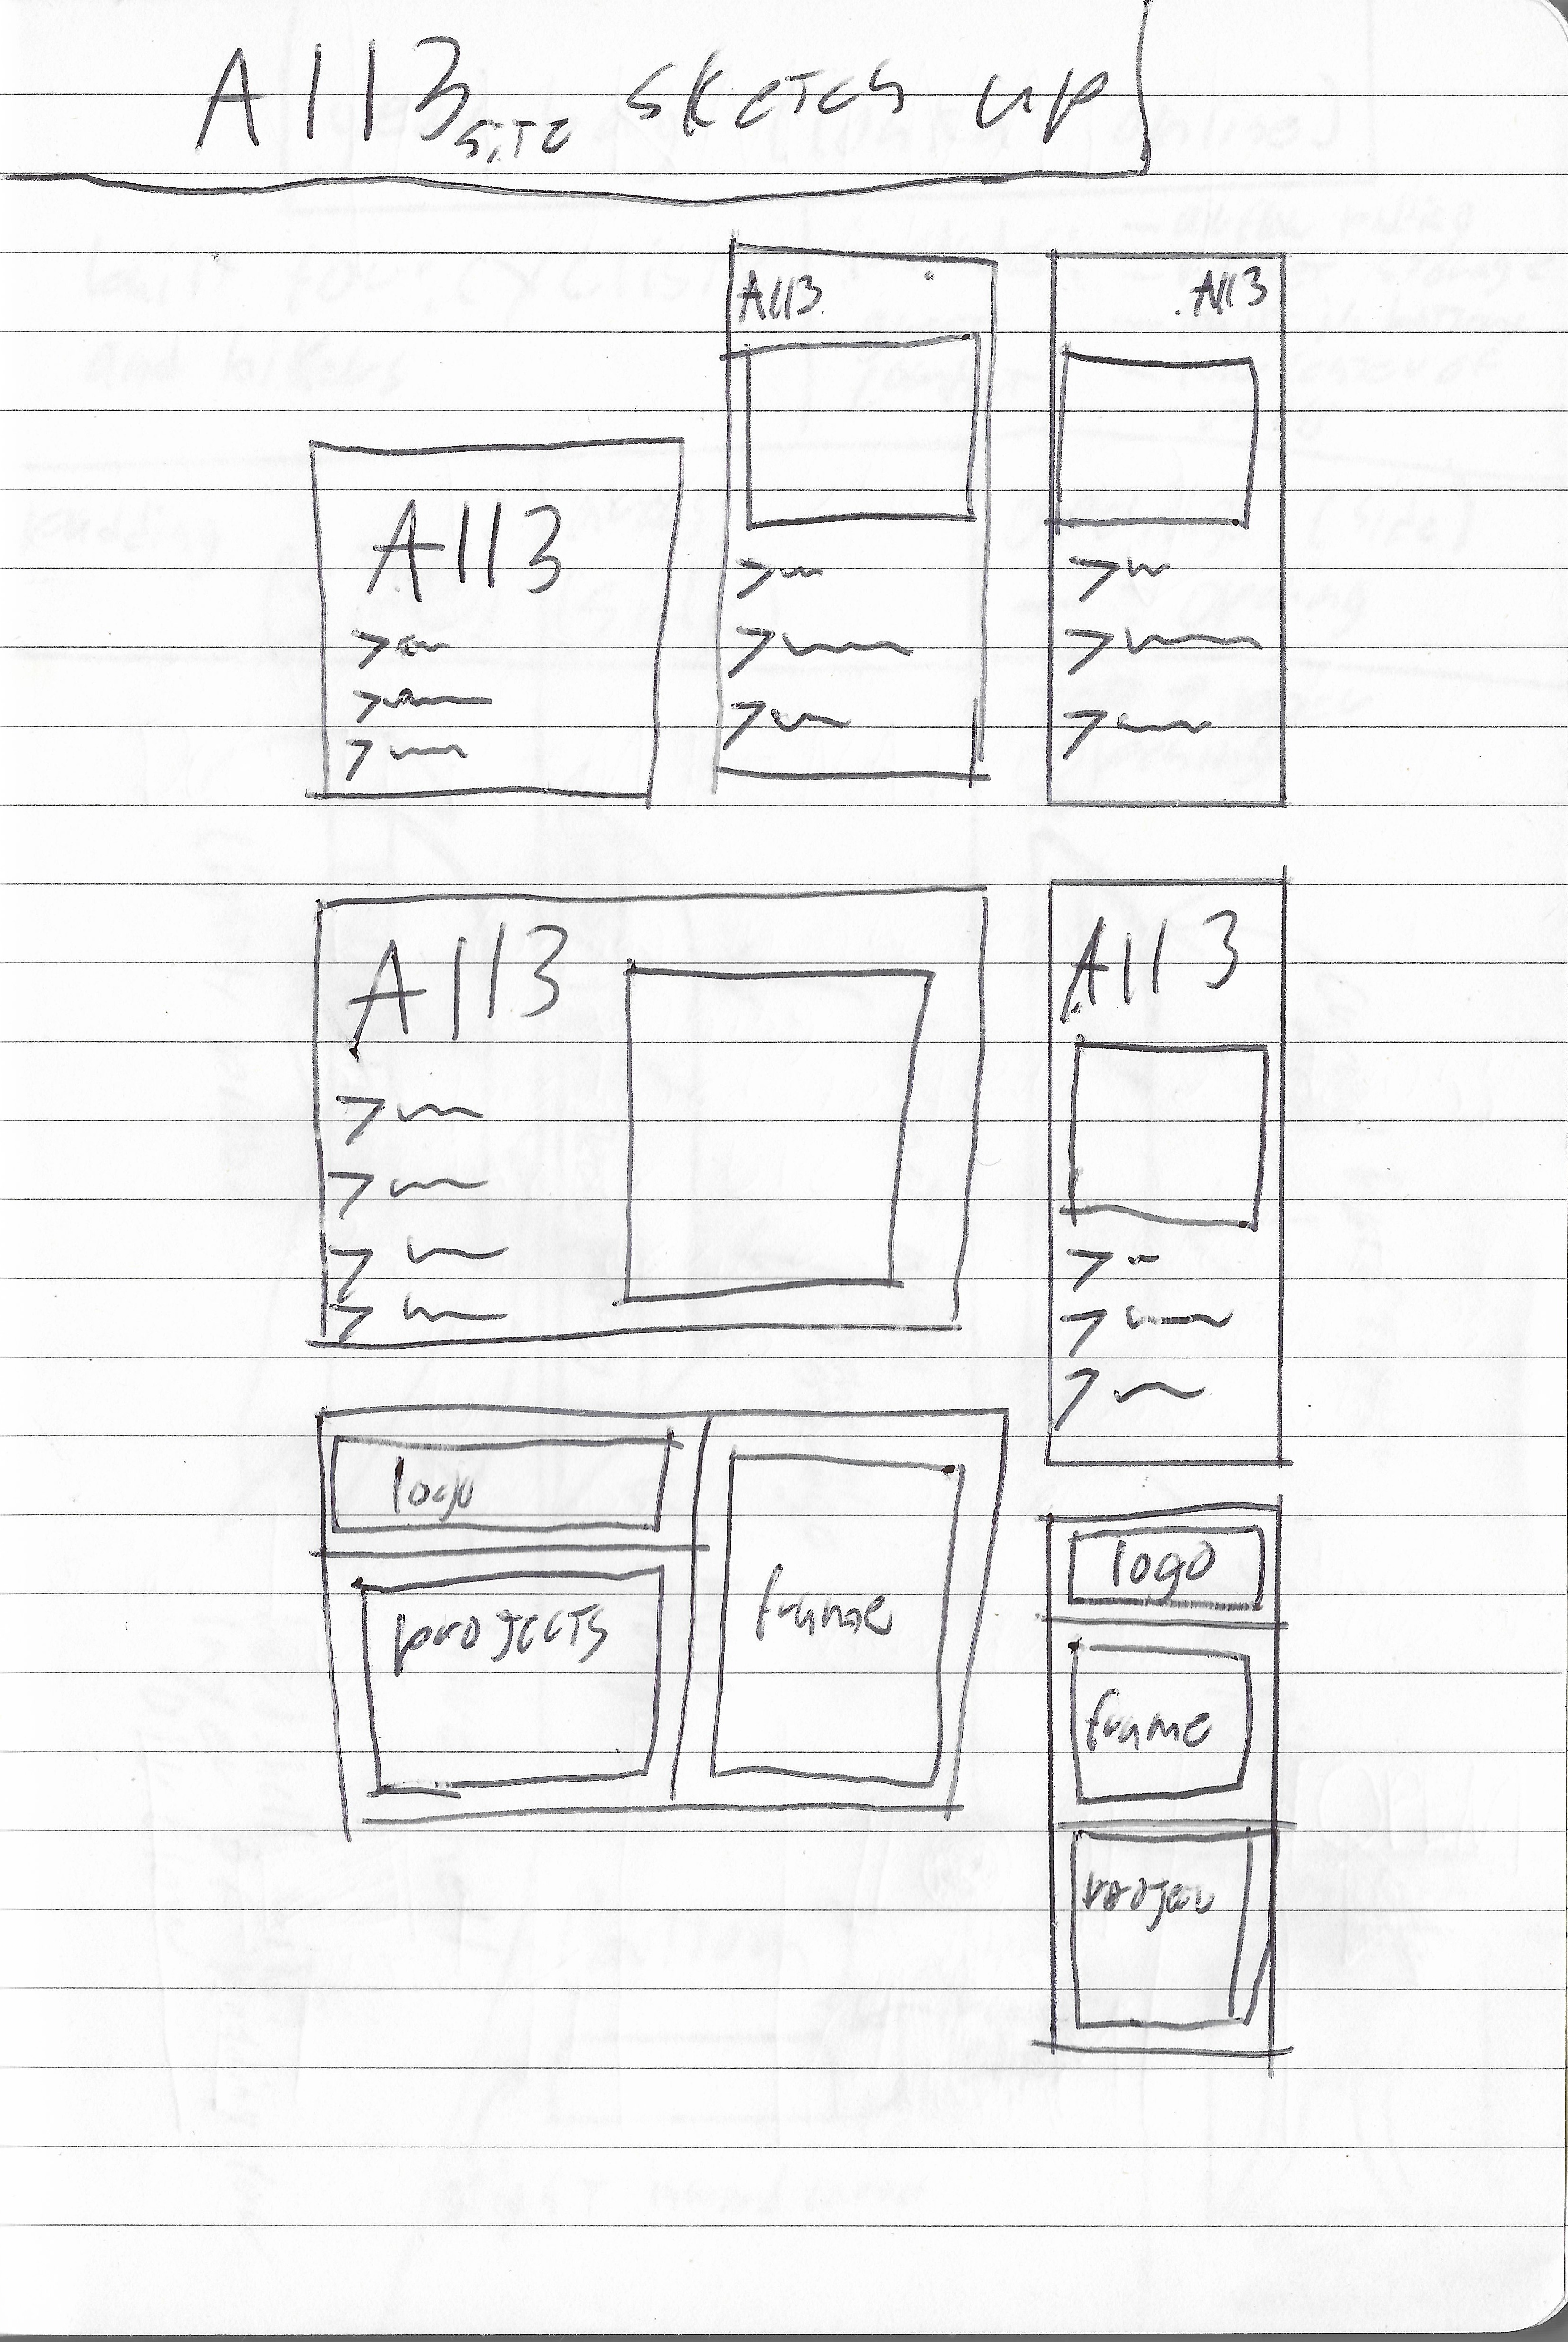 A113 site sketch up
A113
A113
A113
A113
A113
logo
projects
frame
logo
frame